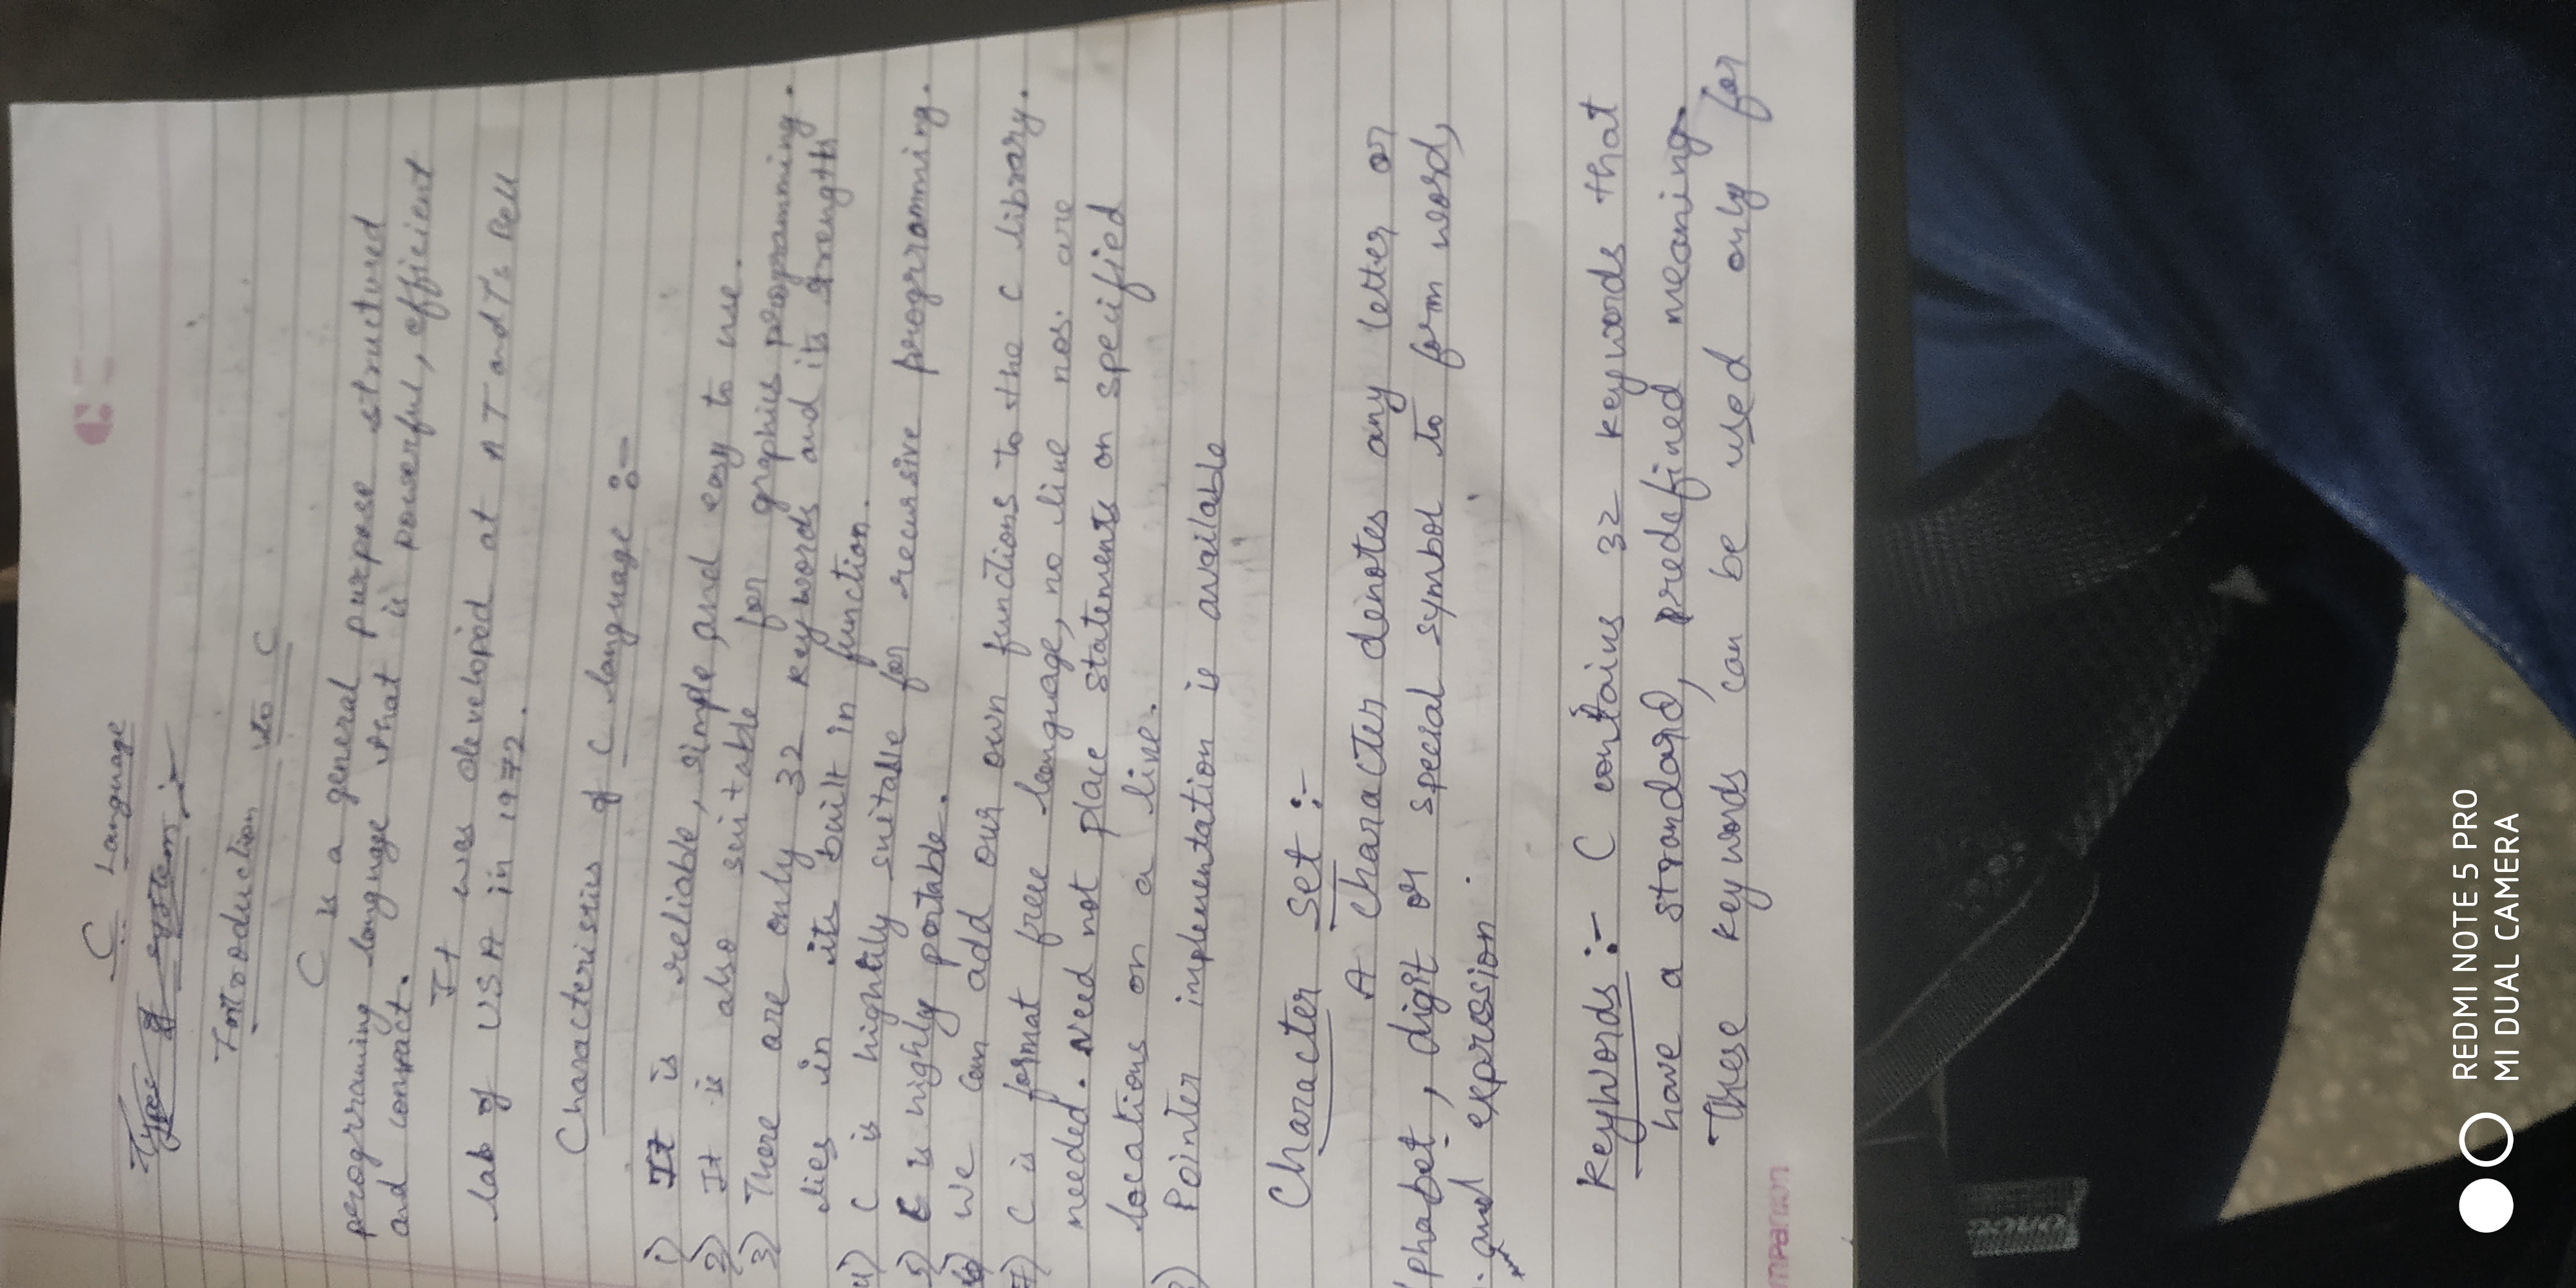 C Language
Types of system :-
Introduction to C
C is a general purpose structured
programing language that is powerful, efficient
and compact.
It was developed at AT and T's Bell
lab of USA in 1972.
Characteristics of C language :-
1) It is reliable, simple and easy to use.
2) It is also suitable for graphics programming.
3) There are only 32 keywords and its strength
lies in its built in function.
4) C is highly suitable for recursive programming.
5) C is highly portable.
6) We can add our own functions to the C library.
7) C is format free language, no line nos. are
needed. Need not place statements on specified
locations on a line.
) Pointer implementation is available
Character set :-
A character denotes any letter or
phabet, digit or special symbol to form word,
and expression
Keywords :- C contains 32 keywords that
have a standard, predefined meaning
These keywords can be used only for
mpanion
REDMI NOTE 5 PRO
MI DUAL CAMERA